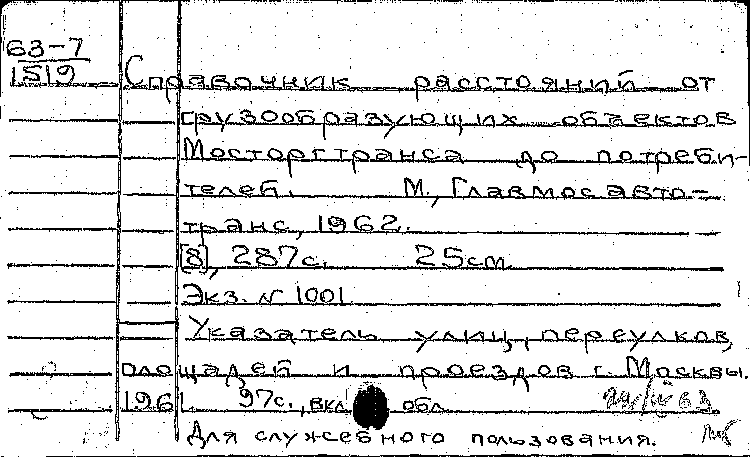 63-7
1519
Справочник расстояний от
грузообразующих объектов
Мосторгтранса до потреби-
телей. М., Главмосавто-
транс, 1962.
[8], 287с. 25см.
Экз. № 1001
Указатель улиц, переулков,
площадей и проездов г. Москвы.
1961. 97с., вкл. обл.
Для служебного пользования.